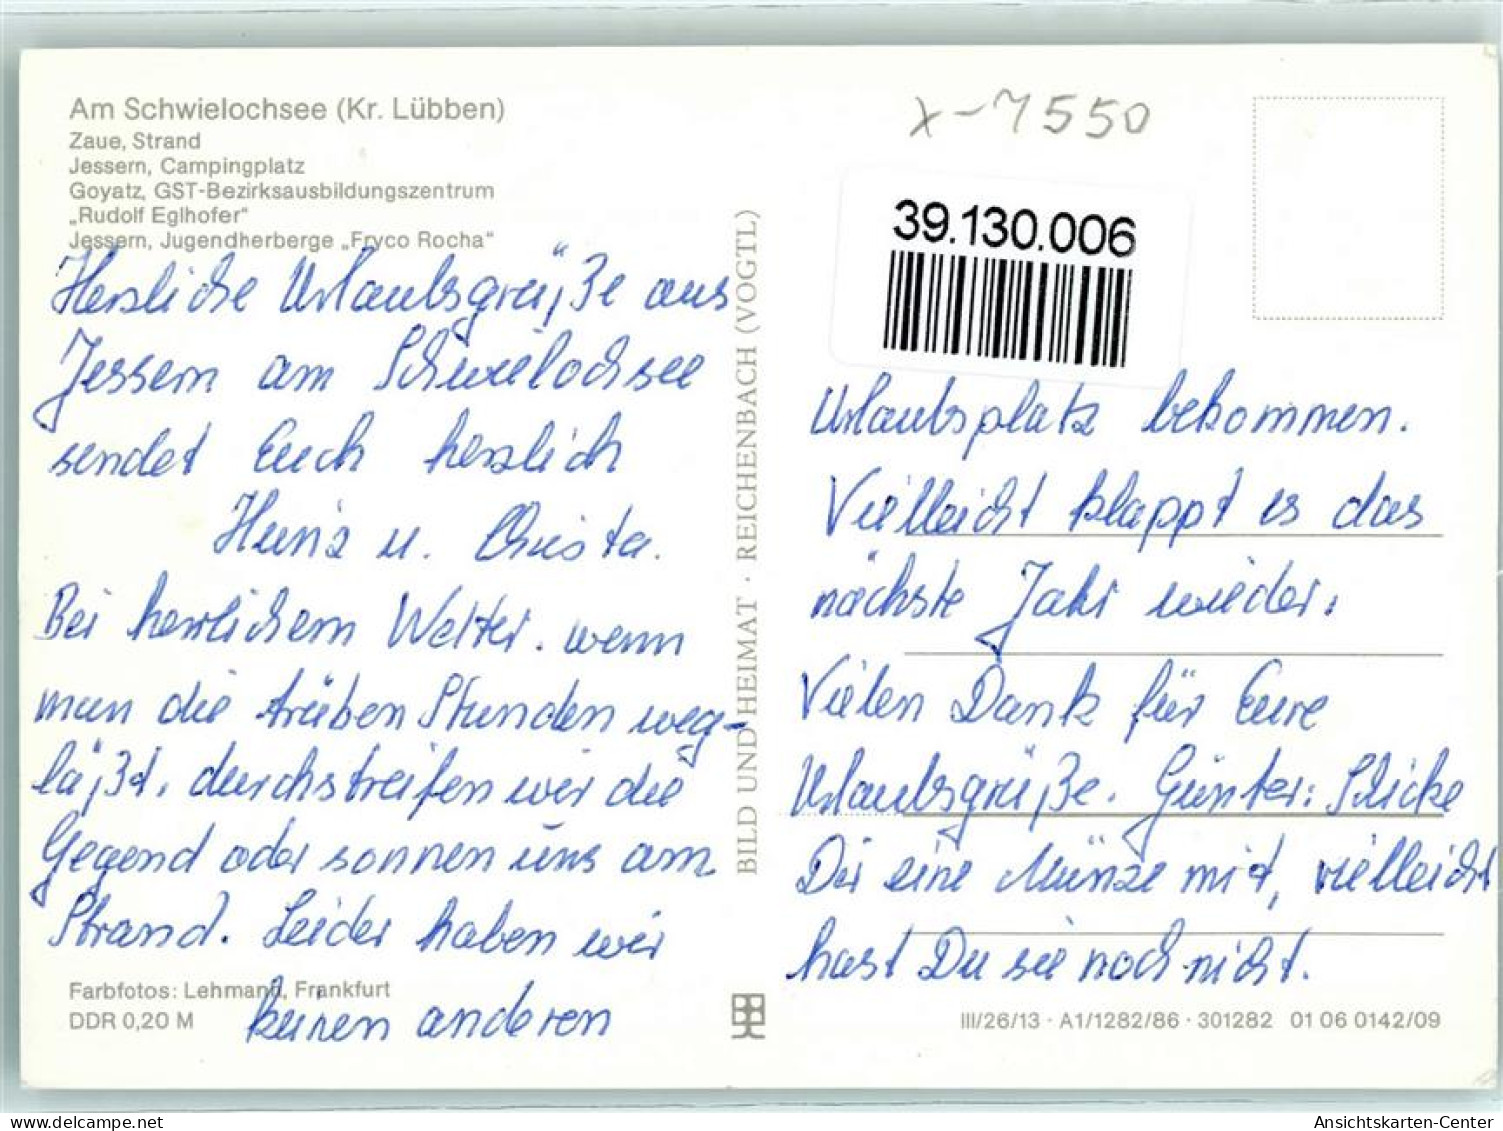 Am Schwielochsee (Kr. Lübben)
Zaue, Strand
Jessern, Campingplatz
Goyatz, GST-Bezirksausbildungszentrum
„Rudolf Eglhofer“
Jessern, Jugendherberge „Fryco Rocha“
Herzliche Urlaubsgrüße aus
Jessern am Schwielochsee
sendet Euch herzlich
Heinz u. Christa.
Bei herrlichem Wetter. wenn
man die trüben Stunden weg-
läßt, durchstreifen wir die
Gegend oder sonnen uns am
Strand. Leider haben wir
keinen anderen
Farbfotos: Lehmann, Frankfurt
DDR 0,20 M
BILD UND HEIMAT · REICHENBACH (VOGTL)
x-7550
39.130.006
Urlaubsplatz bekommen.
Vielleicht klappt es das
nächste Jahr wieder.
Vielen Dank für Eure
Urlaubsgrüße. Günter: Schicke
Dir eine Münze mit, vielleicht
hast Du sie noch nicht.
III/26/13 · A1/1282/86 · 301282 01 06 0142/09
oldthing.de
Ansichtskarten-Center